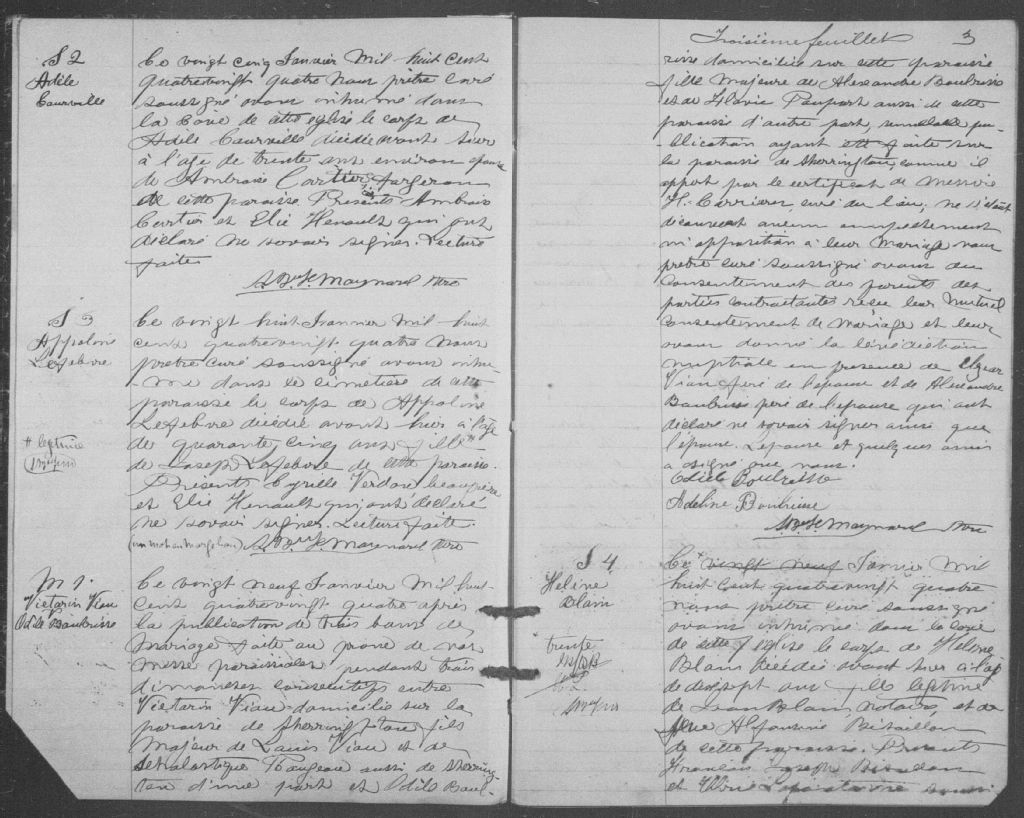 S 2
Adèle
Courville
Ce vingt cinq Janvier Mil huit cent
quatrevingt quatre Nous prêtre curé
soussigné avons inhumé dans
la Cave de cette église le corps de
Adèle Courville décédée avant hier
à l'age de trente ans environ épouse
de Ambroise Cartier forgeron
de cette paroisse. Présents Ambroise
Cartier et Elie Henault qui ont
déclaré ne savoir signer. Lecture
faite
Maynard Ptre
S 3
Appoline
Lefebvre
Ce vingt huit Janvier Mil huit
cent quatrevingt quatre Nous
prêtre curé soussigné avons inhu-
-mé dans le cimetière de cette
paroisse le corps de Appoline
Lefebvre décédée avant hier à l'age
de quarante cinq ans fille #
de Joseph Lefebvre de cette paroisse.
Présents Cyrille Verdon beaupère
et Elie Henault qui ont déclaré
ne savoir signer. Lecture faite.
# legitime
(un mot en marge bon) Maynard Ptre
M 1.
Victorin Viau
Odile Baubrisse
Ce vingt neuf Janvier Mil huit
Cent quatrevingt quatre après
la publication de trois bans de
Mariage faite au prone de nos
Messe paroissiales pendant trois
dimanches consecutifs entre
Victorin Viau domicilié sur la
paroisse de Sherrington fils
Majeur de Louis Viau et de
Scholastique aussi de Sherring-
ton d'une part et Odile Baub-
Troisième feuillet 3
risse domiciliée sur cette paroisse
fille Majeure de Alexandre Baubrisse
et de Flavie Poupart aussi de cette
paroisse d'autre part, semblable pu-
blication ayant été faite sur
la paroisse de Sherrington, comme il
appert par le certificat de Messire
H. curé du lieu; ne s'étant
découvert aucun empêchement
ni opposition à leur Mariage nous
prêtre curé soussigné avons du
Consentement des parents des
parties contractantes reçu leur mutuel
consentement de Mariage et leur
avons donné la bénédiction
nuptiale en présence de
Viau père de l'époux et de Alexandre
Baubrisse père de l'épouse qui ont
déclaré ne savoir signer ainsi que
l'époux. L'épouse et quelques amis
a signé que nous.
Adeline
Maynard Ptre
S 4
Helène
Blain
trente
Ce vingt neuf Janvier Mil
huit Cent quatrevingt quatre
nous prêtre curé soussigné
avons inhumé dans la cave
de cette église le corps de Helène
Blain décédée avant hier à l'age
de dixsept ans fille legitime
de Jean Blain, Notaire, et de
feue Alphonsine
de cette paroisse. Présents
Joseph
et